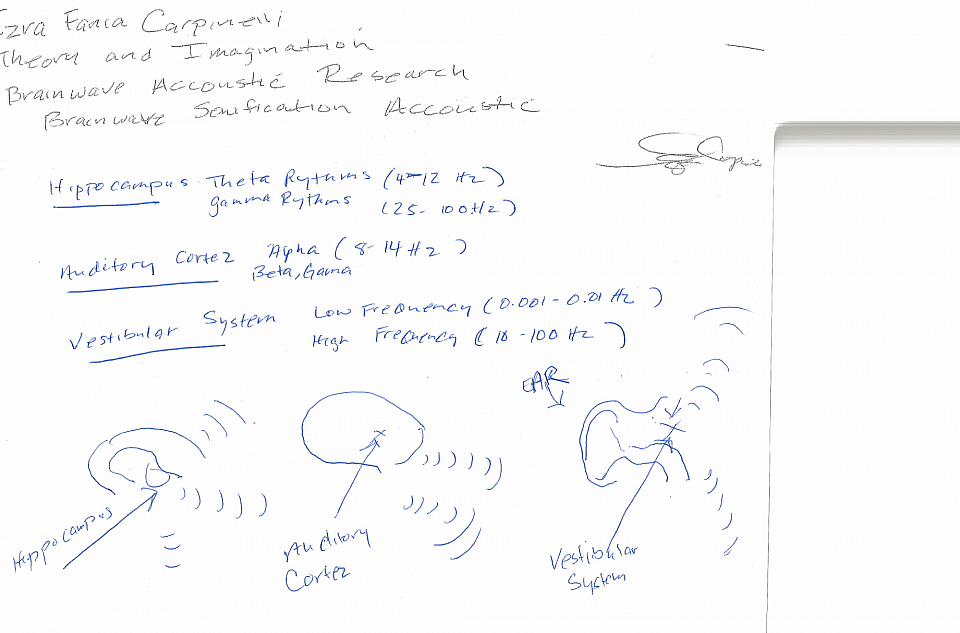 Ezra Fania Carpinelli
Theory and Imagination
Brainwave Accoustic Research
Brainwave Sonification Accoustic
Hippocampus Theta Rythms (4-12 Hz)
gamma Rythms (25-100Hz)
Auditory Cortez Alpha (8-14Hz)
Beta, Gama
Vestibular System Low Frequency (0.001-0.01 Hz)
High Frequency (10-100 Hz)
EAR
Hippocampus
Auditory
Cortez
Vestibular
System